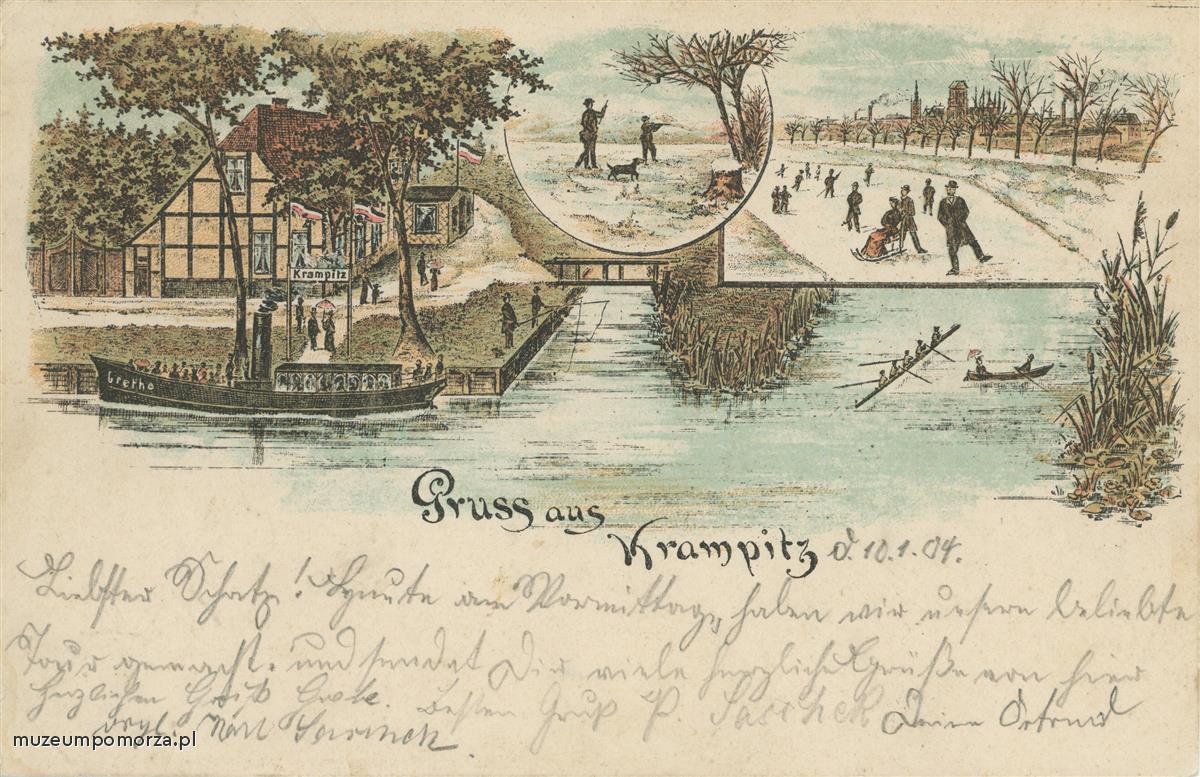 Krampitz
Grethe
Gruss aus
Krampitz d. 10.1.04.
Liebster Schatz! Heute am Vormittag haben wir unsern beliebte
Tour gemacht. und sendet Dir viele herzliche Grüße von hier
Herzlichen Gruß Besten Gruß P. Saschek Deine
muzeumpomorza.pl